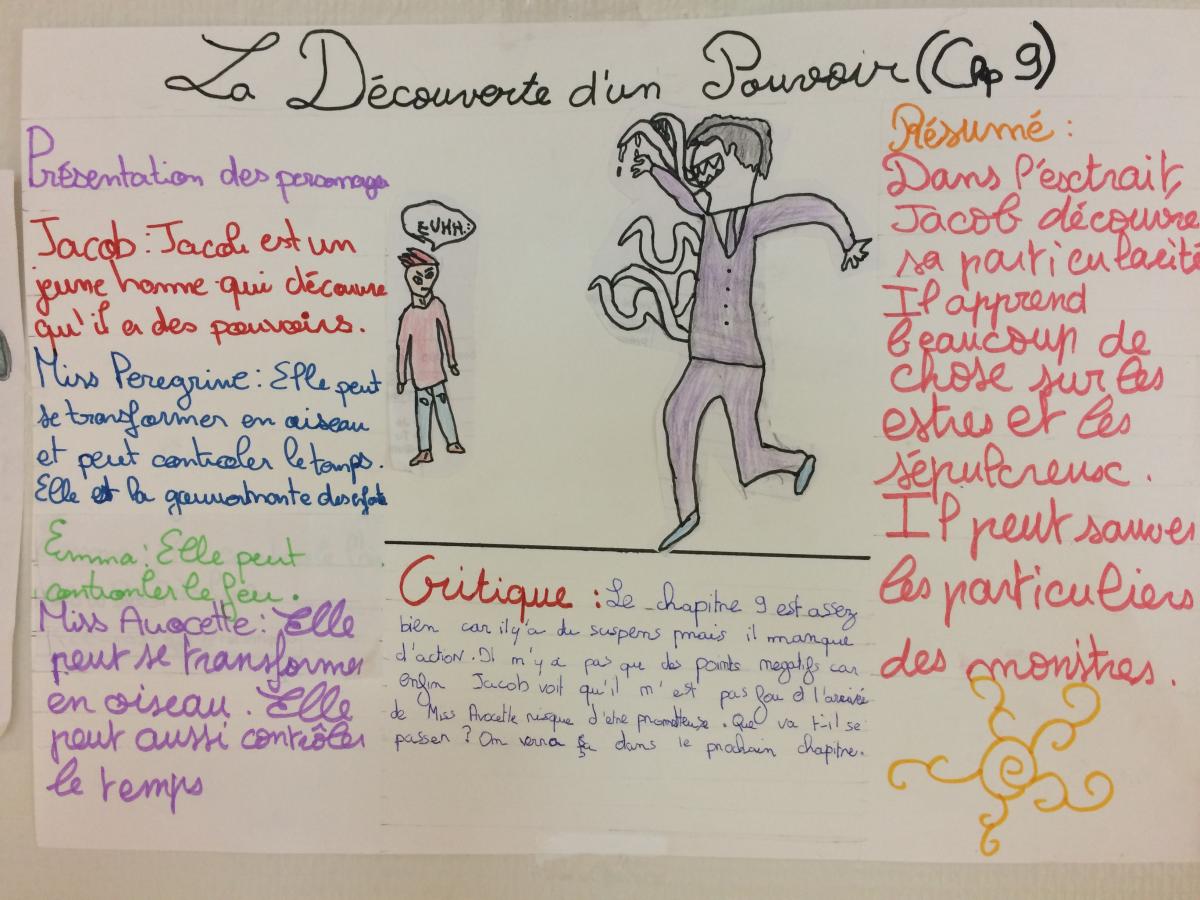 La Découverte d'un Pouvoir (Chp 9)
Présentation des personages
Jacob : Jacob est un
jeune homme qui découvre
qu'il a des pouvoirs.
Miss Peregrine : Elle peut
se transformer en oiseau
et peut controler le temps.
Elle est la gouvernante des
Emma : Elle peut
controler le feu.
Miss Avocette : Elle
peut se transformer
en oiseau. Elle
peut aussi contrôler
le temps
EUHH..
Critique : Le chapitre 9 est assez
bien car il y'a du suspens mais il manque
d'action. Il n'y a pas que des points negatifs car
enfin Jacob voit qu'il n'est pas fou et l'arrivée
de Miss Avocette risque d'etre prometteuse. Que va t-il se
passer ? On verra ça dans le prochain chapitre.
Résumé :
Dans l'éxctrait,
Jacob découvre
sa particularité
Il apprend
beaucoup de
chose sur les
estres et les
sépulcreux.
Il peut sauver
les particuliers
des monstres.